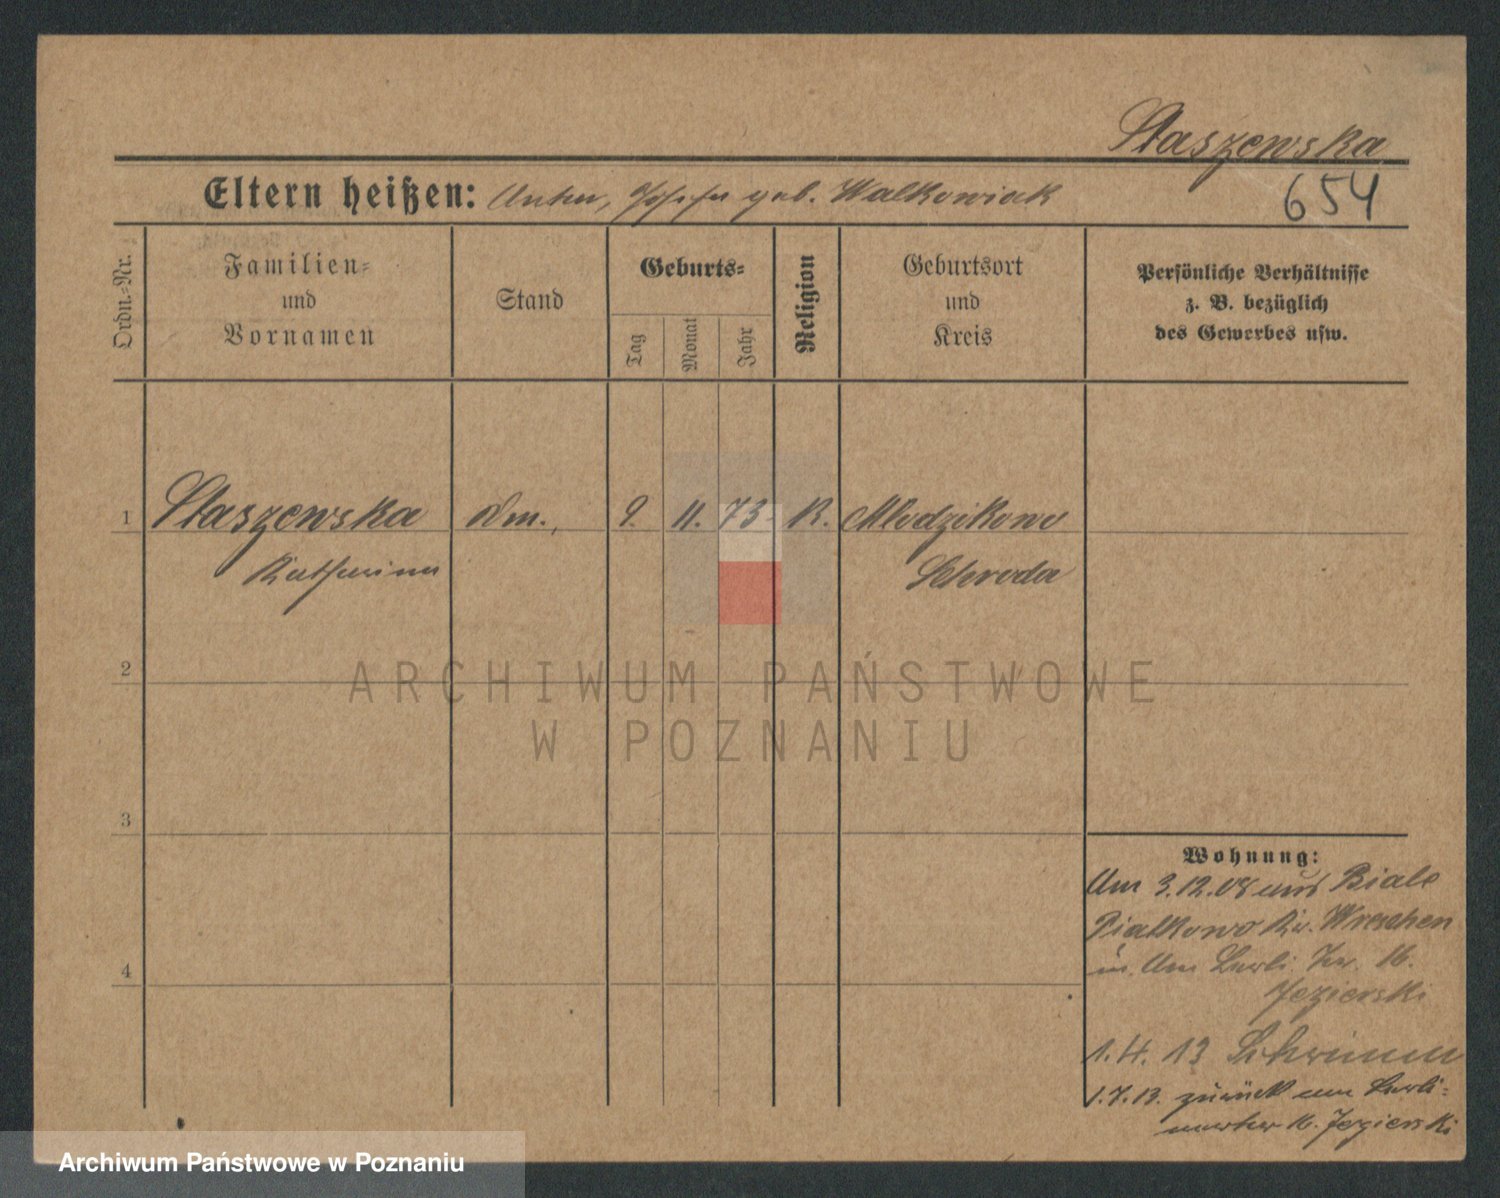 Staszewska
Eltern heißen: Anton, Josefa geb. Walkowiak
654
Ordn.-Nr.
Familien-
und
Vornamen
Stand
Geburts-
Tag
Monat
Jahr
Religion
Geburtsort
und
Kreis
Persönliche Verhältnisse
z. B. bezüglich
des Gewerbes usw.
1 Staszewska 9. 11. 73. K. Mlodzikowo
Katharina Schroda
2
ARCHIWUM PAŃSTWOWE
W POZNANIU
3
Wohnung:
Am 3.12.08 aus Biale
Piatkowo Kr. Wreschen
4
Jezierski
1.4.13 Schrimm
1.7.13. zurück
Jezierski
Archiwum Państwowe w Poznaniu